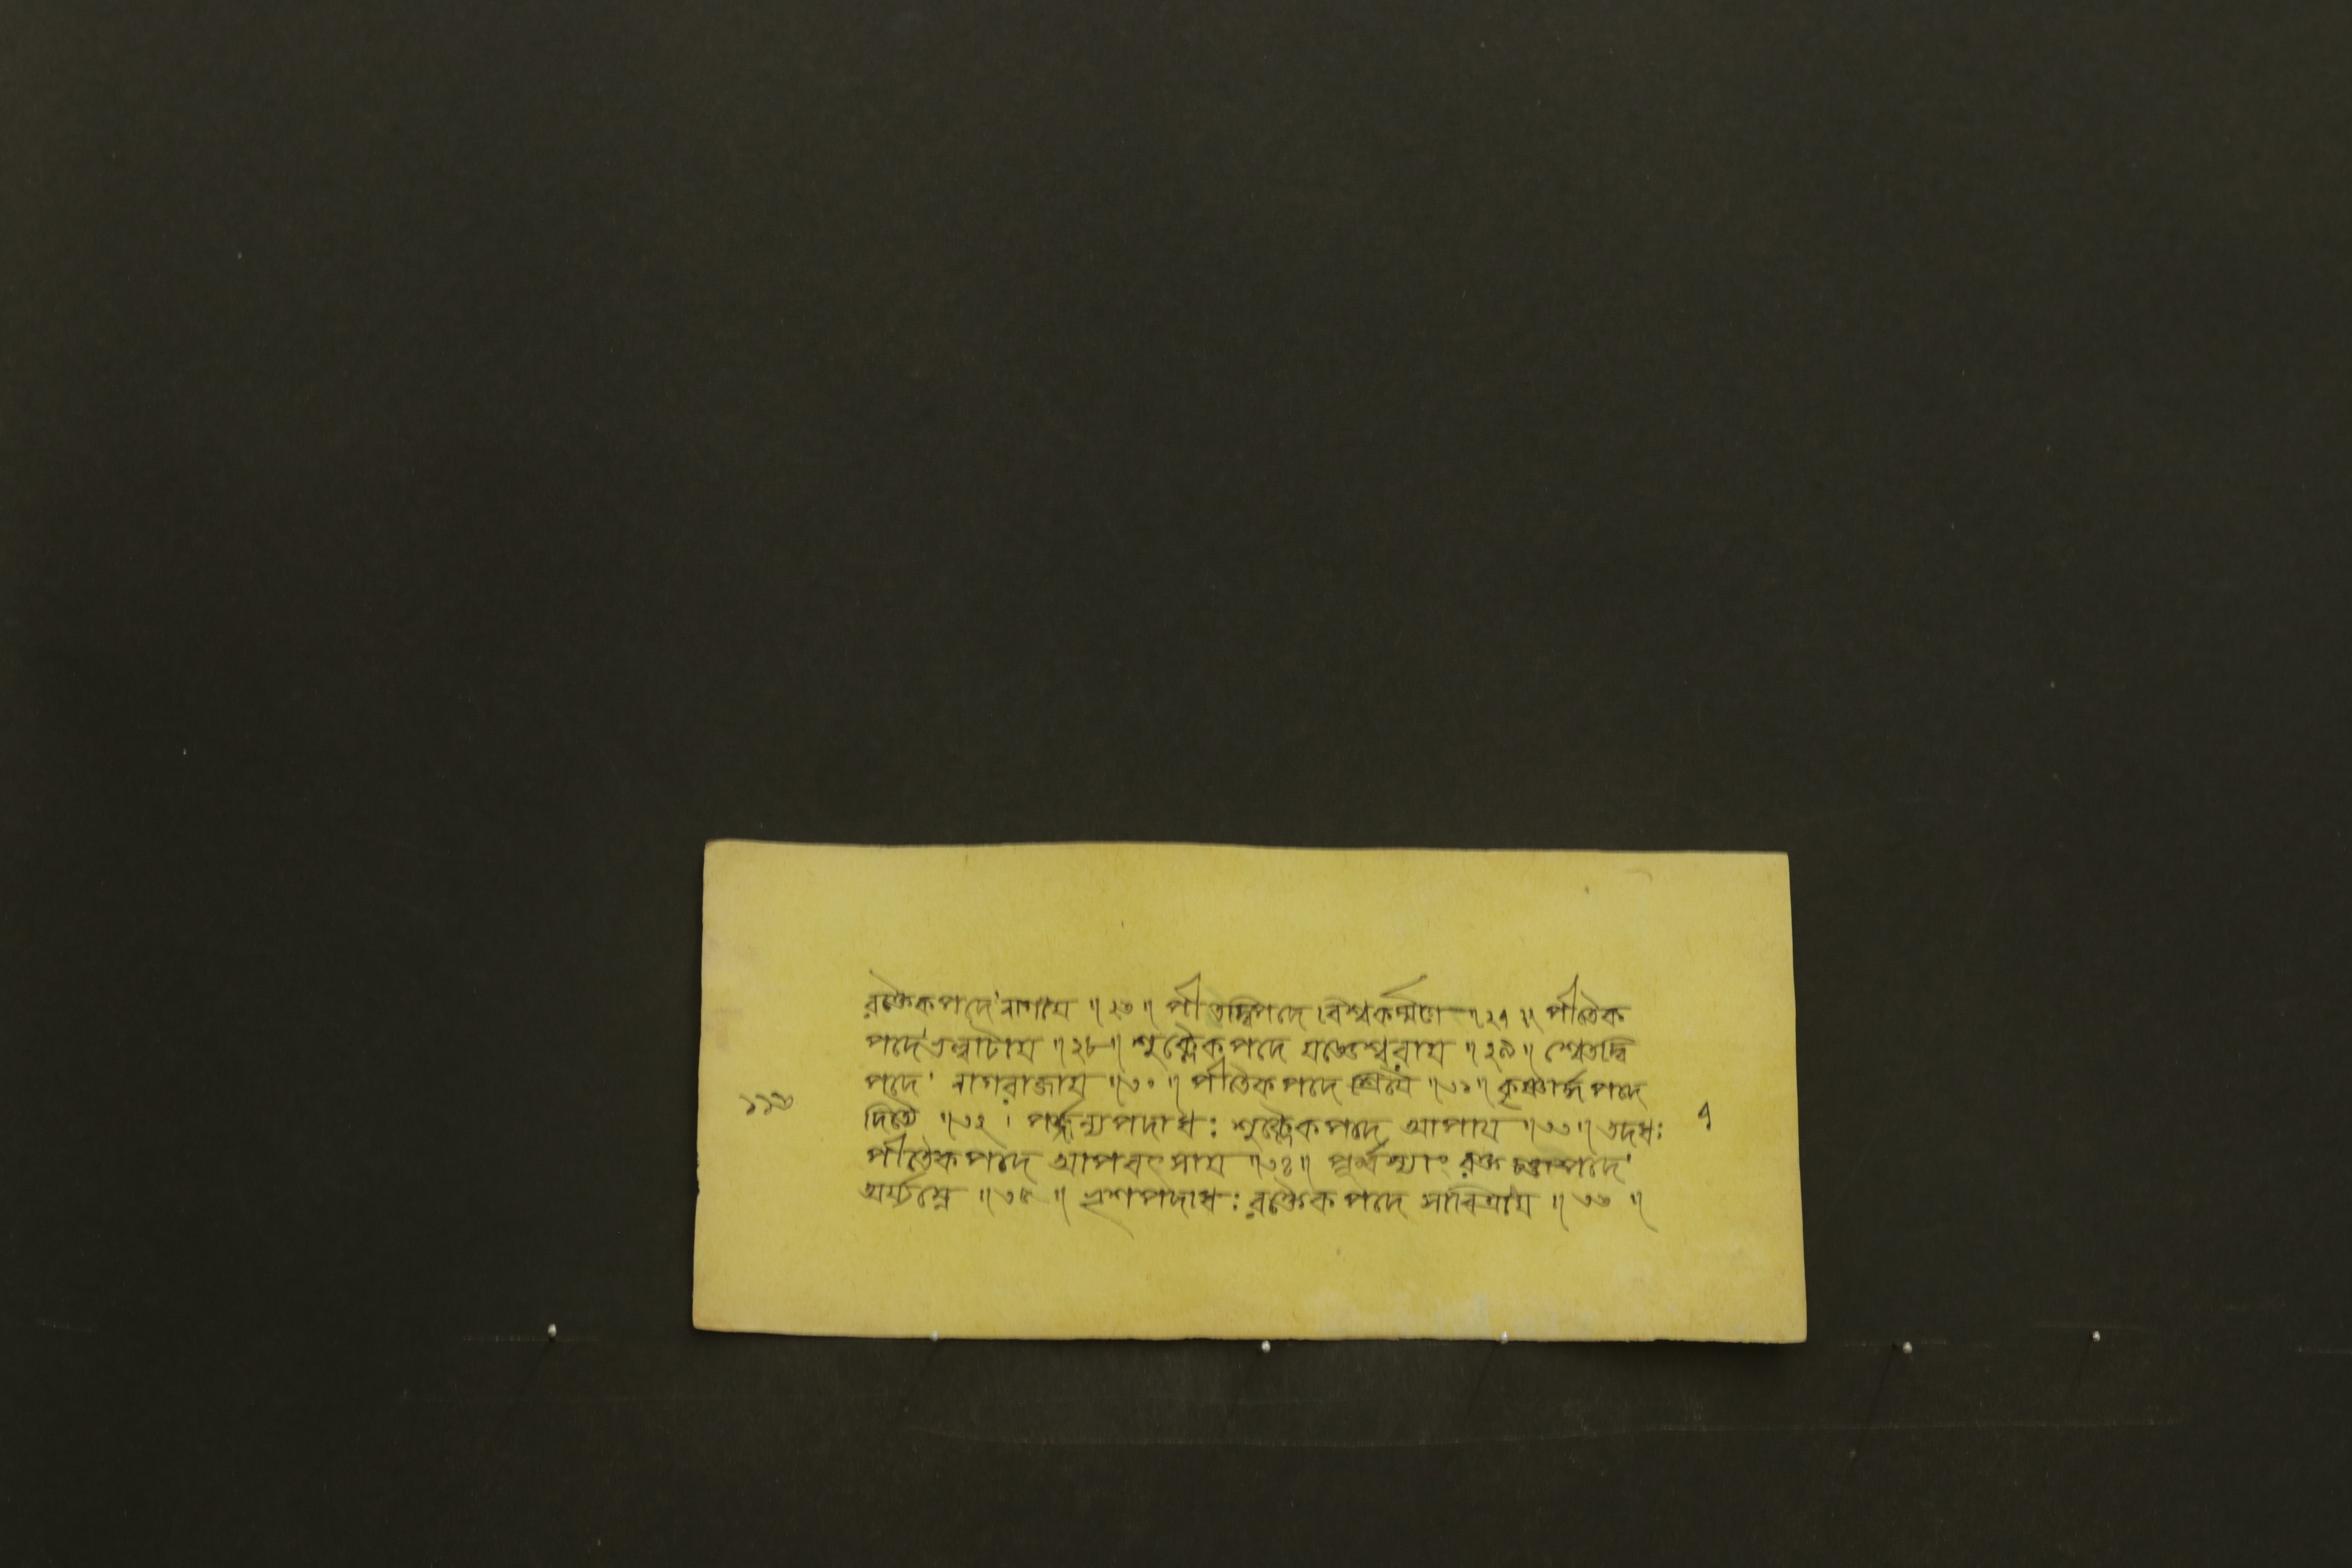 রক্তৈকপদে নাগায ॥ ২৬ ॥ পীতদ্বিপদে বিশ্বকর্ম্মণে ॥ ২৭ ॥ পীতৈক
পদে ভল্লাটায ॥ ২৮ ॥ শুক্লৈকপদে যজ্ঞেশ্বরায ॥ ২৯ ॥ শ্বেতদ্বি
পদে নাগরাজায ॥ ৩০ ॥ পীতৈকপদে শ্রিযৈ ॥ ৩১ ॥ কৃষ্ণার্দ্ধপদে
দিত্যৈ ॥ ৩২ । পর্জ্জন্যপদাধঃ শুক্লৈকপদে আপায ॥ ৩৩ ॥ তদধঃ
পীতৈকপদে আপবৎসায ॥ ৩৪ ॥ পূর্ব্বস্যাং রক্ত পদে
অর্য্যম্নে ॥ ৩৫ ॥ পদাধঃ রক্তৈকপদে সাবিত্রায ॥ ৩৬ ॥
১১৩
৭